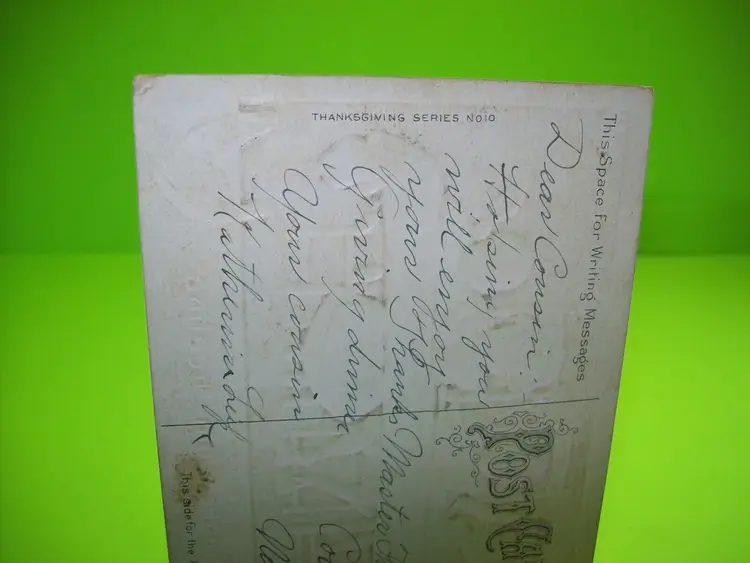 THANKSGIVING SERIES NO 10
This Space For Writing Messages
Dear Cousin:
Hoping you
will enjoy
your Thanks
Giving dinner
Your cousin
POST CA
Master
This side for the